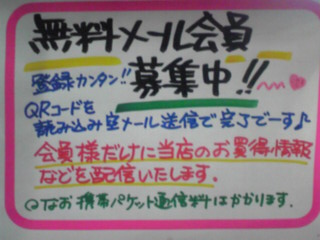 無料メール会員
登録カンタン!! 募集中!!
QRコードを
読み込み空メール送信で完了でーす♪
会員様だけに当店のお買得情報
などを配信いたします。
なお携帯パケット通信料はかかります.